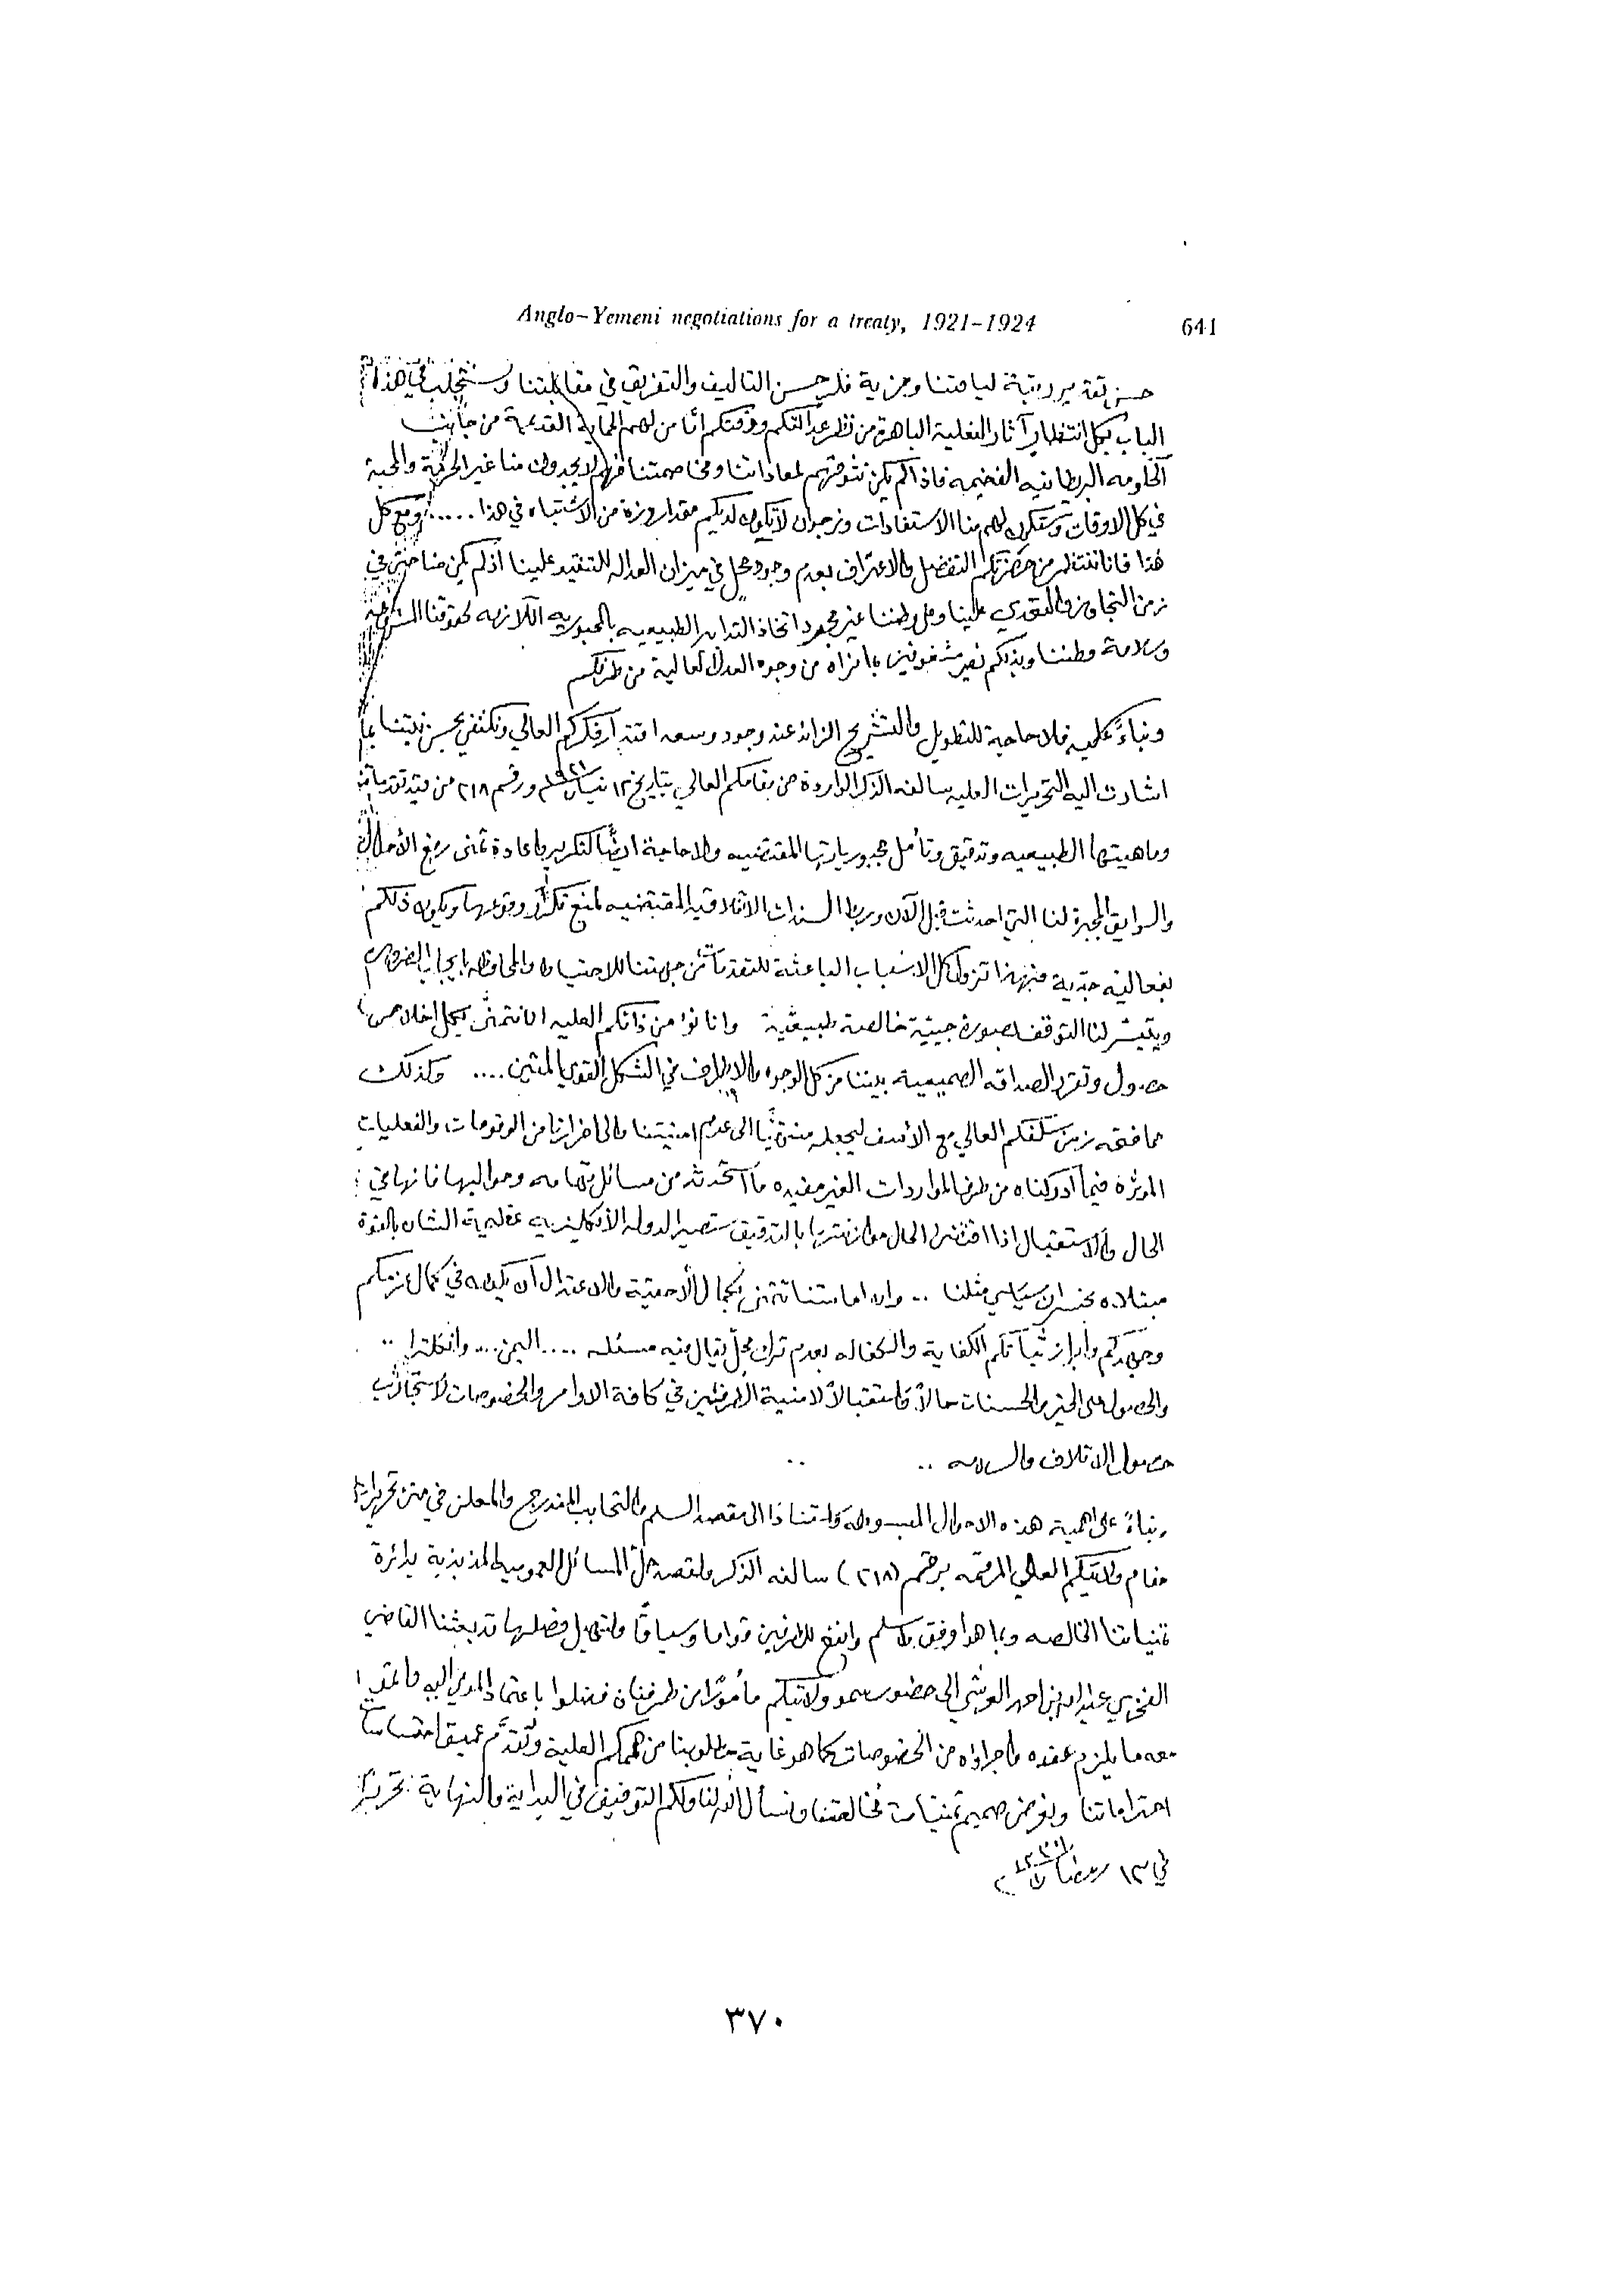 Anglo-Yemeni negotiations for a treaty, 1921-1924
641
حسن تقدير رتبة لياقتنا ومزية فكر حسن التأليف والتفريق في مقابلتنا في هذا
الباب بكل انتظار آثار الفعلية الباهرة من نظر عدالتكم ودقتكم أنا من لهم الحماية القديمة من جانب
الحكومه البريطانيه الفخيمه فاذا لم يكن تشوقهم لمعاداتنا ومخاصمتنا فهم لا يجدون منا غير الحرمة والمحبة
في كل الاوقات وستكون لهم منا الاستفادات ونرجو ان لا يكون لديكم مقدار وزرة من الاشتباه في هذا ..... ومع كل
هذا فاننا ننتظر من حضرتكم التفضل والاعتراف بعدم وجود محل في ميزان العداله للتنقيد علينا اذ لم يكن منا حتى في
زمن التجاوز والتعدي علينا وعلى وطننا غير مجرد اتخاذ التدابير الطبيعيه بالمجبوريه اللازمه لحقوقنا المشروعة
وسلامة وطننا وبذلكم نصير مشغوفين بما نراه من وجوه العدل العالية من طرفكم
وبناءً عليه فلا حاجة للتطويل والتشريح الزائد عند وجود وسعه اقتدار فكركم العالي ونكتفي بحسن نيتنا بما
اشارت اليه التحريرات العليه سالفة الذكر الواردة من مقامكم العالي بتاريخ ١٢ نيسان ٩٢١ ورقم ٢١٨ من
وماهيتها الطبيعيه وتدقيق وتأمل مجبورياتها المقتضيه ولا حاجة ايضًا لتكرير واعادة تمنى رفع الأحوال
والسوابق المجبرة لنا التي احدثت قبل الآن وربط السندات الائتلافية المقتضيه لمنع تكرار وقوعها ويكون ذلكم
بفعالية جدية فبهذا تزول كل الاسباب الباعثة للتقدمات من جهتنا للاحتياط والمحافظه بايجاب الضرورة
ويتيسر لنا التوقف بصورة جبيّة خالصة طبيعية وانا نؤمن ذاتكم العليه انا نتمنى بكل اخلاص
حصول وتقرر الصداقه الصميمية بيننا من كل الوجوه والاطراف في الشكل القوي المتين .... وكذلك
مما فتحه زمن سلفكم العالي مع الأسف ليجعله منتجًا الى عدم امنيتنا والى احرازنا من الوقوعات والفعليات
المؤثرة فيما أدركناه من طرف المواردات الغير مفيده ما استحدثه من مسائل تهامه وحواليها فانها في
الحال والاستقبال اذا اقتضى الحال موازنتها بالتدقيق ستصير الدوله الأنكليزيه عظيمة الشان بالقوة
مبتلاه بخسران سياسي مثلنا .. وان امامتنا تتمنى بكمال الأحقية والاعتدال أن يكون في كمال عزمكم
وجهدكم وابراز ثباتكم الكفاية والكفاله بعدم ترك محل يقال فيه مسئله .... اليمن ... وانكلترا ..
والحصول على الخير والحسنات حالاً واستقبالاً لامنية الطرفين في كافة الاوامر والخصوصات لاستجلاب
حصول الائتلاف والسلامه .. ..
وبناءً على اهمية هذه الاحوال المبسوطه واستنادًا الى مقصد السلم والتحابب المندرج والمعلن في متن تحريرات
مقام ولايتكم العالي المرقمه برقم (٢١٨) سالفه الذكر ولقصد حل المسائل العموميه المذبذبة بدائرة
تمنياتنا الخالصه وبما هو أوفق واسلم وانفع للطرفين دواما وسياقًا ولتسهيل فصلها قد بعثنا القاضي
الفخري عبدالله بن احمد العرشي الى حضور سمو ولايتكم مأمورًا من طرفنا فتفضلوا باعتماد المومى اليه
معه ما يلزم عقده واجراؤه من الخصوصات كما هو غاية مطلوبنا من هممكم العلية ونقدم عميق احتساسات
احتراماتنا ونعرض صميم تمنيات مخالصتنا ونسأل الله لنا ولكم التوفيق في البداية والنهاية تحريرًا
في ١٣ رمضان
٣٧٠